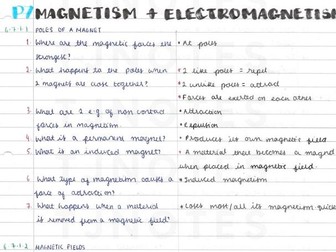 P7 MAGNETISM + ELECTROMAGNETISM
6.7.1.1 POLES OF A MAGNET
1 Where are the magnetic forces the strongest? • The poles
2 What happens to the poles when 2 magnets are close together? • 2 like poles = repel
• 2 unlike poles = attract
• Forces are exerted on each other
3 What are 2 e.g. of non contact forces in magnetism • Attraction
• Repulsion
4 What is a permanent magnet? • Produces its own magnetic field
5 What is an induced magnet? • A material that becomes a magnet when placed in magnetic field
6 What type of magnetism causes a force of attraction? • Induced magnetism
7 What happens when a material is removed from a magnetic field? • Loses most/all its magnetism quick
6.7.1.2 MAGNETIC FIELDS